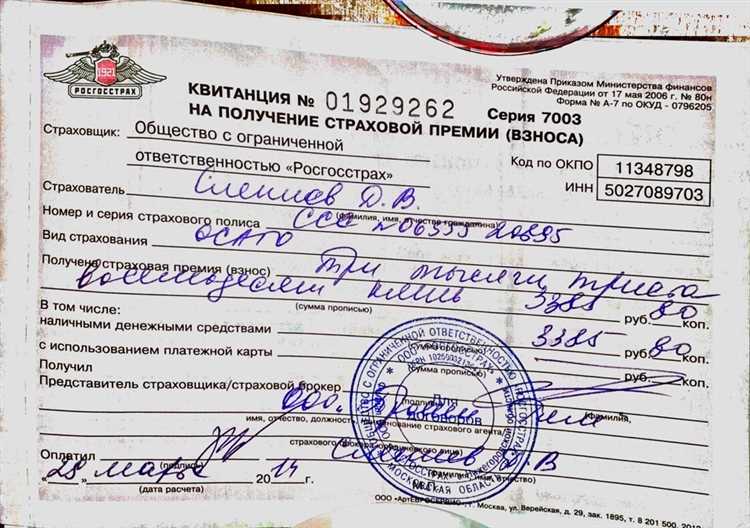 1921
РОСГОССТРАХ
Утверждена Приказом Министерства финансов
Российской Федерации от 17 мая 2006 г. № 80н
Форма № А-7 по ОКУД - 0796205
КВИТАНЦИЯ № 01929262 Серия 7003
НА ПОЛУЧЕНИЕ СТРАХОВОЙ ПРЕМИИ (ВЗНОСА)
Страховщик: Общество с ограниченной
ответственностью «Росгосстрах»
Код по ОКПО 11348798
ИНН 5027089703
Страхователь Д.В.
(фамилия, имя, отчество гражданина)
Номер и серия страхового полиса ССС №
Вид страхования ОСАГО
Получена страховая премия (взнос) три тысячи триста
восемьдесят пять 3385 руб. 80 коп.
(сумма прописью)
В том числе:
наличными денежными средствами 3385 руб. 80 коп.
(сумма прописью)
с использованием платежной карты руб. коп.
(сумма прописью)
Получил
Представитель страховщика/страховой брокер
(подпись) (фамилия,
ООО
имя, отчество, должность, наименование страхового агента/
страхового брокера-юридического лица)
Оплатил Д.В
(подпись) (фамилия, имя, отчество)
"28" марта 2014 г.
(дата расчета)
Для
договоров
МОСКОВСКАЯ ОБЛАСТЬ
ООО «АртЕВРОСЕРВИС», г. Москва, ул. Верейская, д. 29, зак. 1895, т. 8 201 500, 2010